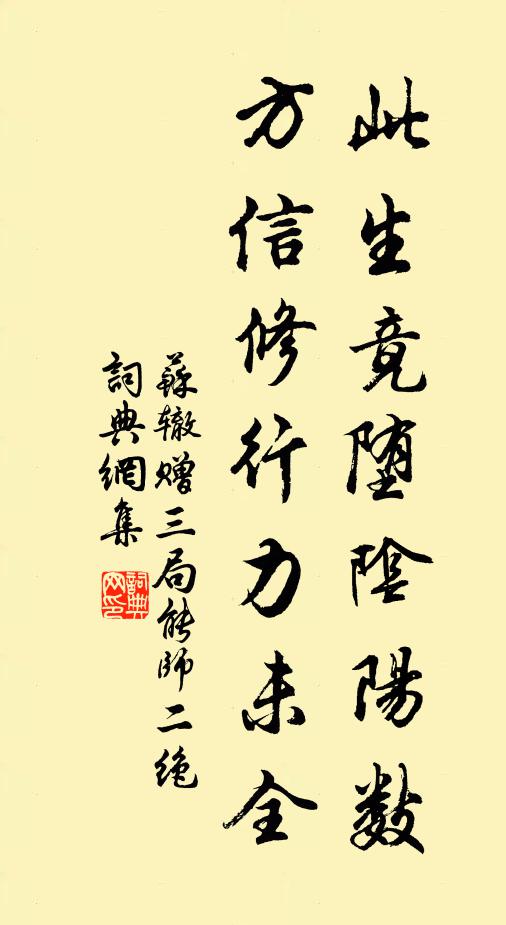 此生竟墮陰陽數
方信修行力未全
蘇轍贈三局能師二絶
詞典網集
詞典
网印